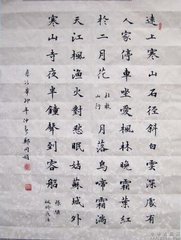 遠上寒山石徑斜白雲深處有
人家停車坐愛楓林晚霜葉紅
於二月花
杜牧
山行
月落烏啼霜滿
天江楓漁火對愁眠姑蘇城外
寒山寺夜半鐘聲到客船
張繼
楓橋夜泊